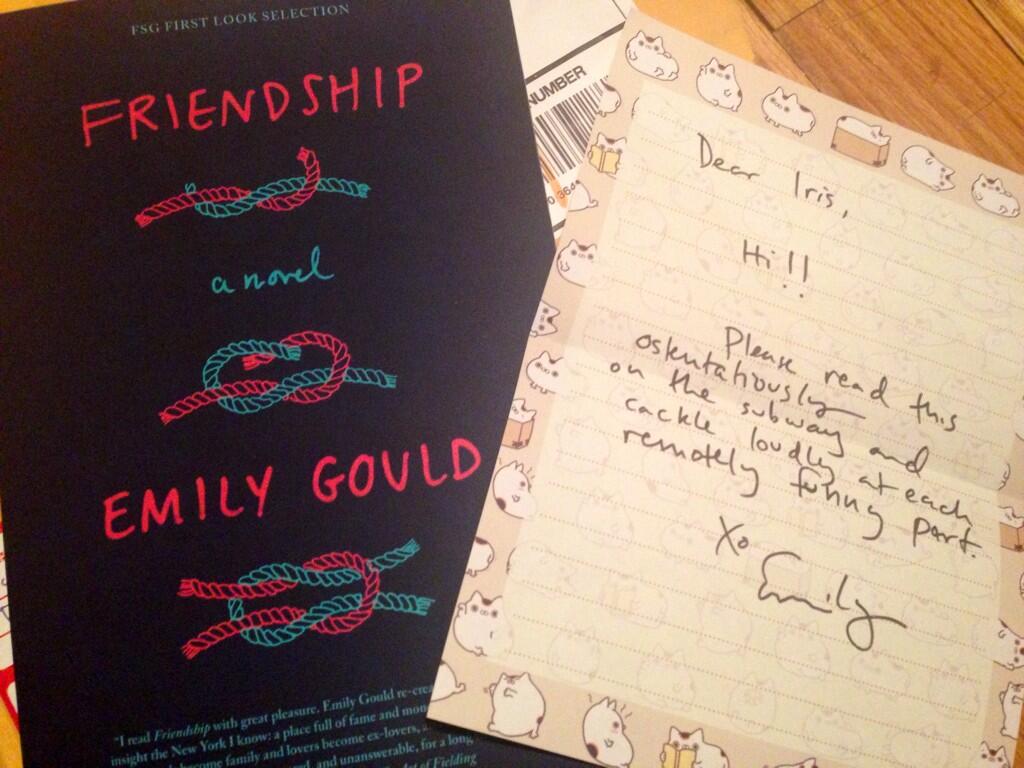 FSG FIRST LOOK SELECTION
FRIENDSHIP
a novel
EMILY GOULD
"I read Friendship with great pleasure. Emily Gould re-crea
insight the New York I know: a place full of fame and mon
become family and lovers become ex-lovers,
and unanswerable, for a long
Art of Fielding
NUMBER
Dear Iris,
Hi!!
Please read this
ostentatiously
on the subway and
cackle loudly at each
remotely funny part.
Xo
Emily